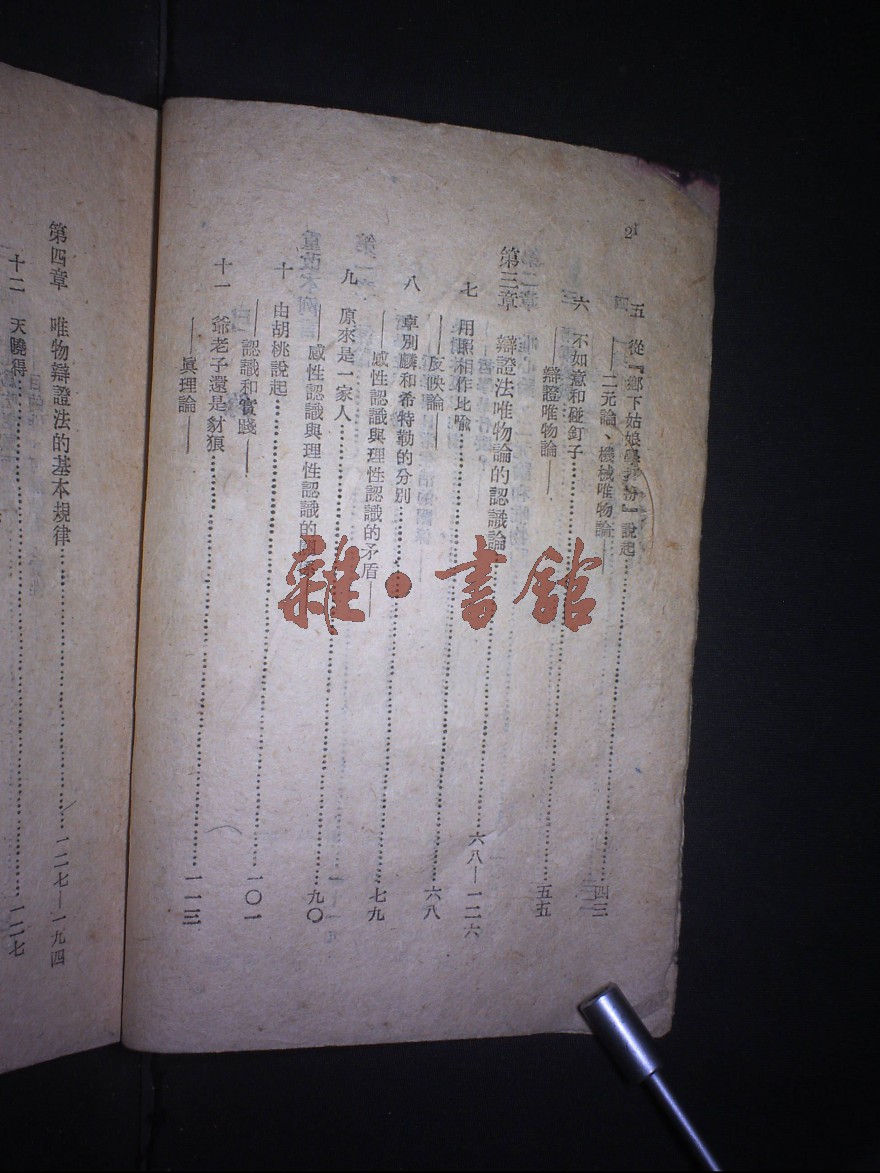 2
五　從『鄉下姑娘學擦粉』說起……四三
——二元論、機械唯物論——
六　不如意和碰釘子……五五
——辯證唯物論——
第三章　辯證法唯物論的認識論……六八—一二六
七　用照相作比喩……六八
——反映論——
八　卓別麟和希特勒的分別……七九
——感性認識與理性認識的矛盾——
九　原來是一家人……九〇
——感性認識與理性認識的
十　由胡桃說起……一〇一
——認識和實踐——
十一　爺老子還是豺狼……一一三
——眞理論——
第四章　唯物辯證法的基本規律……一二七—一九四
十二　天曉得……一二七
雜・書館